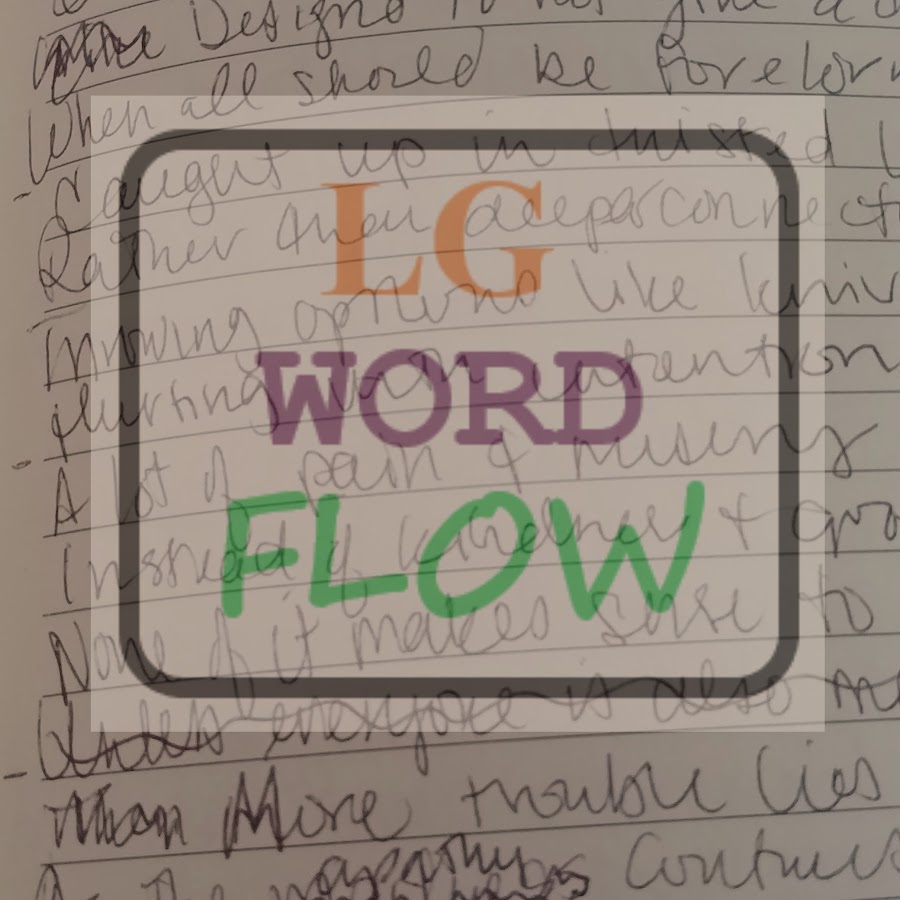 Designs to not give a
When all should be forelorn
Caught up in twisted
Rather than deeper connecti
Throwing options like kniv
flirting with intention
A lot of pain & misery
Instead of kindness + gro
None of it makes sense to
Unless everyone is also me
More trouble lies
To the apathy continues
LG
WORD
FLOW